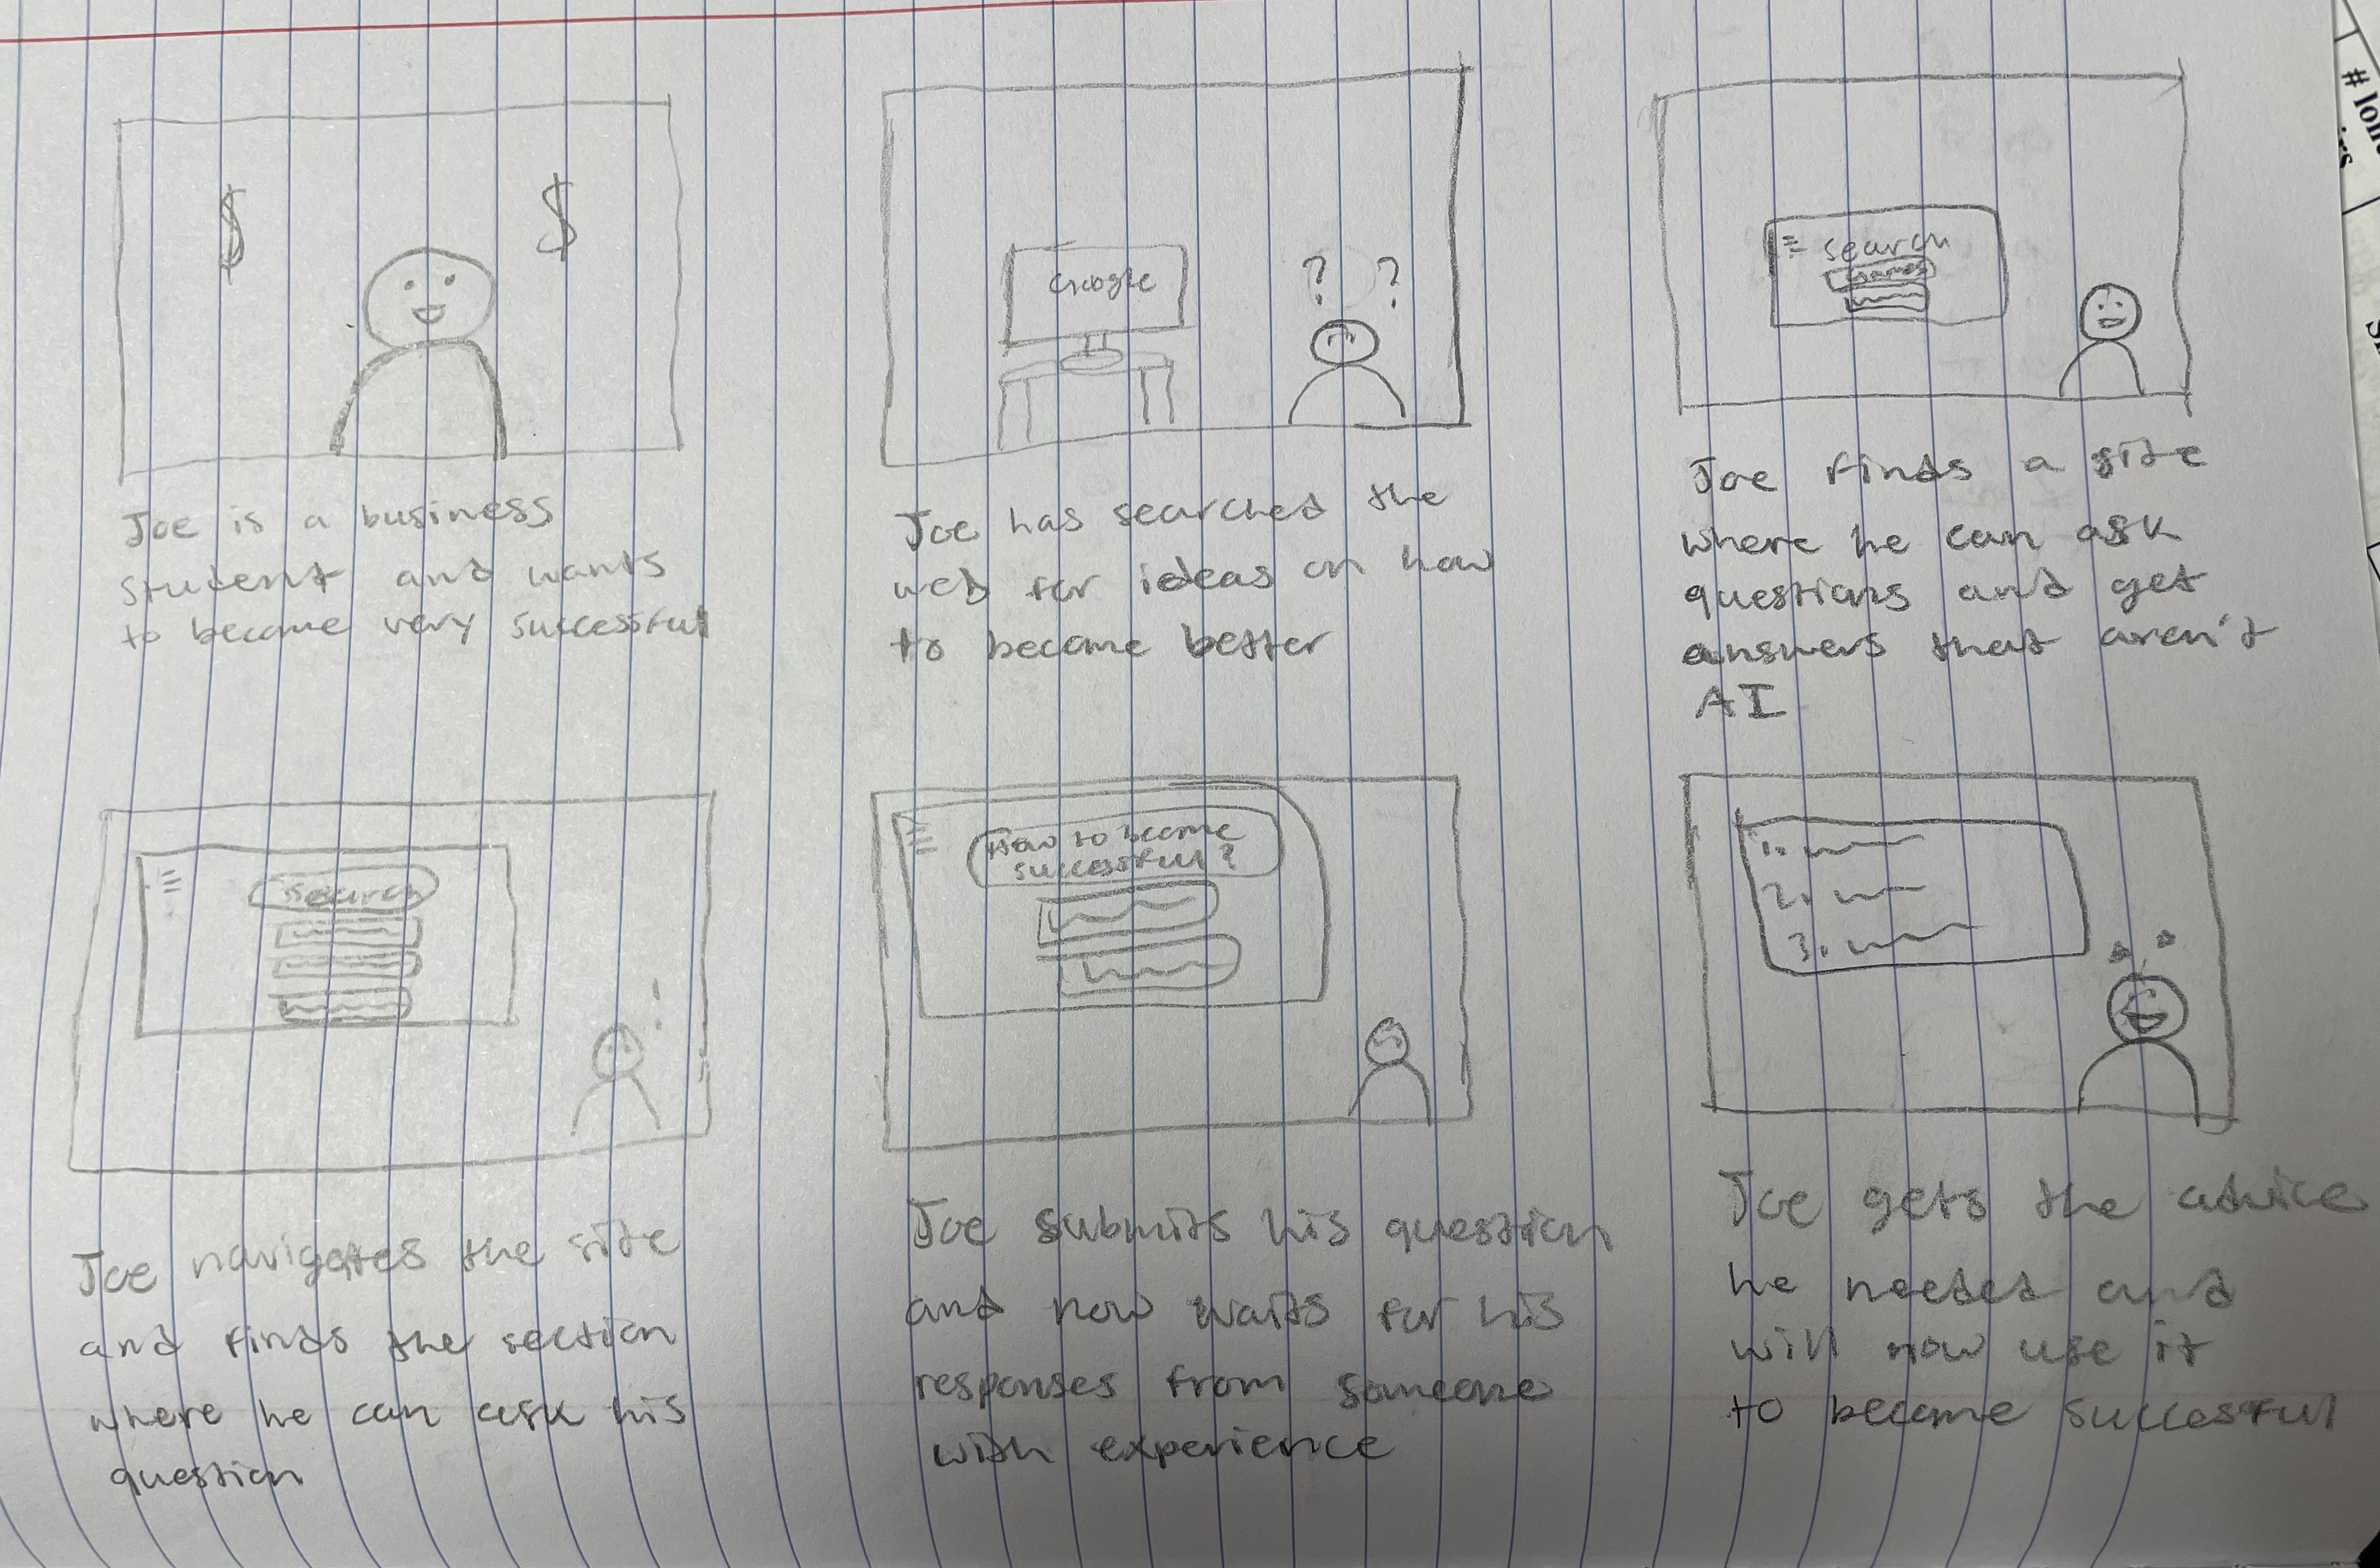 $ $
Joe is a business
student and wants
to become very successful
Google
? ?
Joe has searched the
web for ideas on how
to become better
search
Joe finds a site
where he can ask
questions and get
answers that aren't
AI
search
!
Joe navigates the site
and finds the section
where he can ask his
question
How to become
successful?
Joe submits his question
and now waits for his
responses from someone
with experience
1.
2.
3.
Joe gets the advice
he needed and
will now use it
to become successful